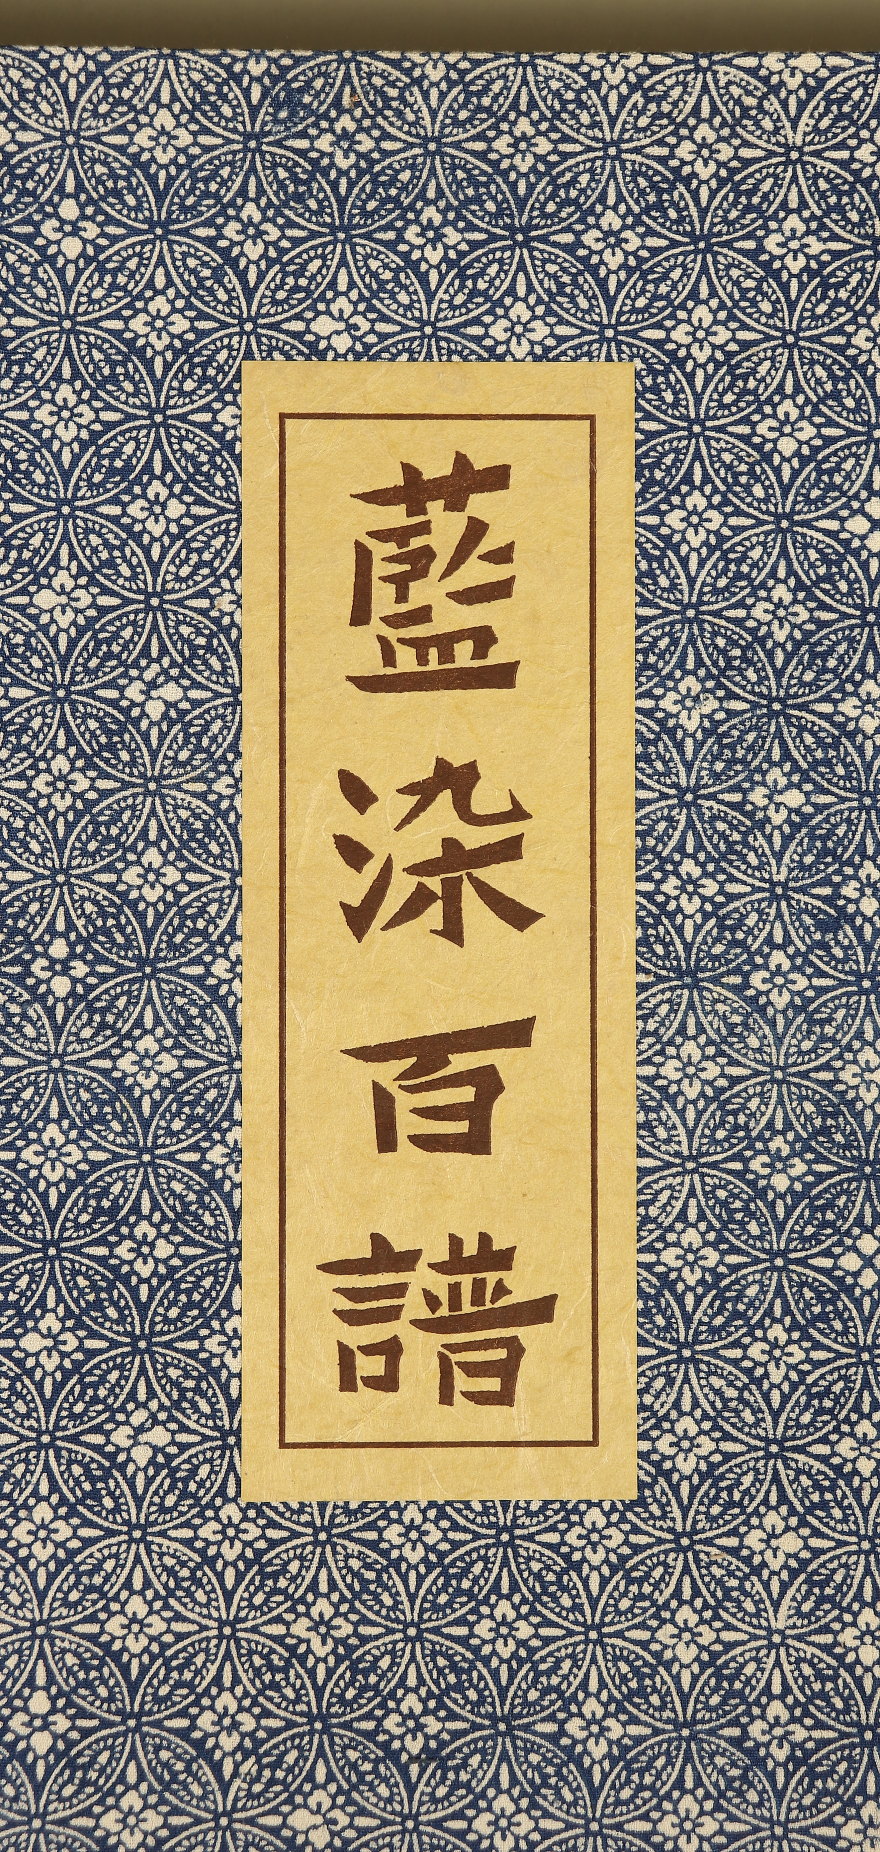 藍染百譜